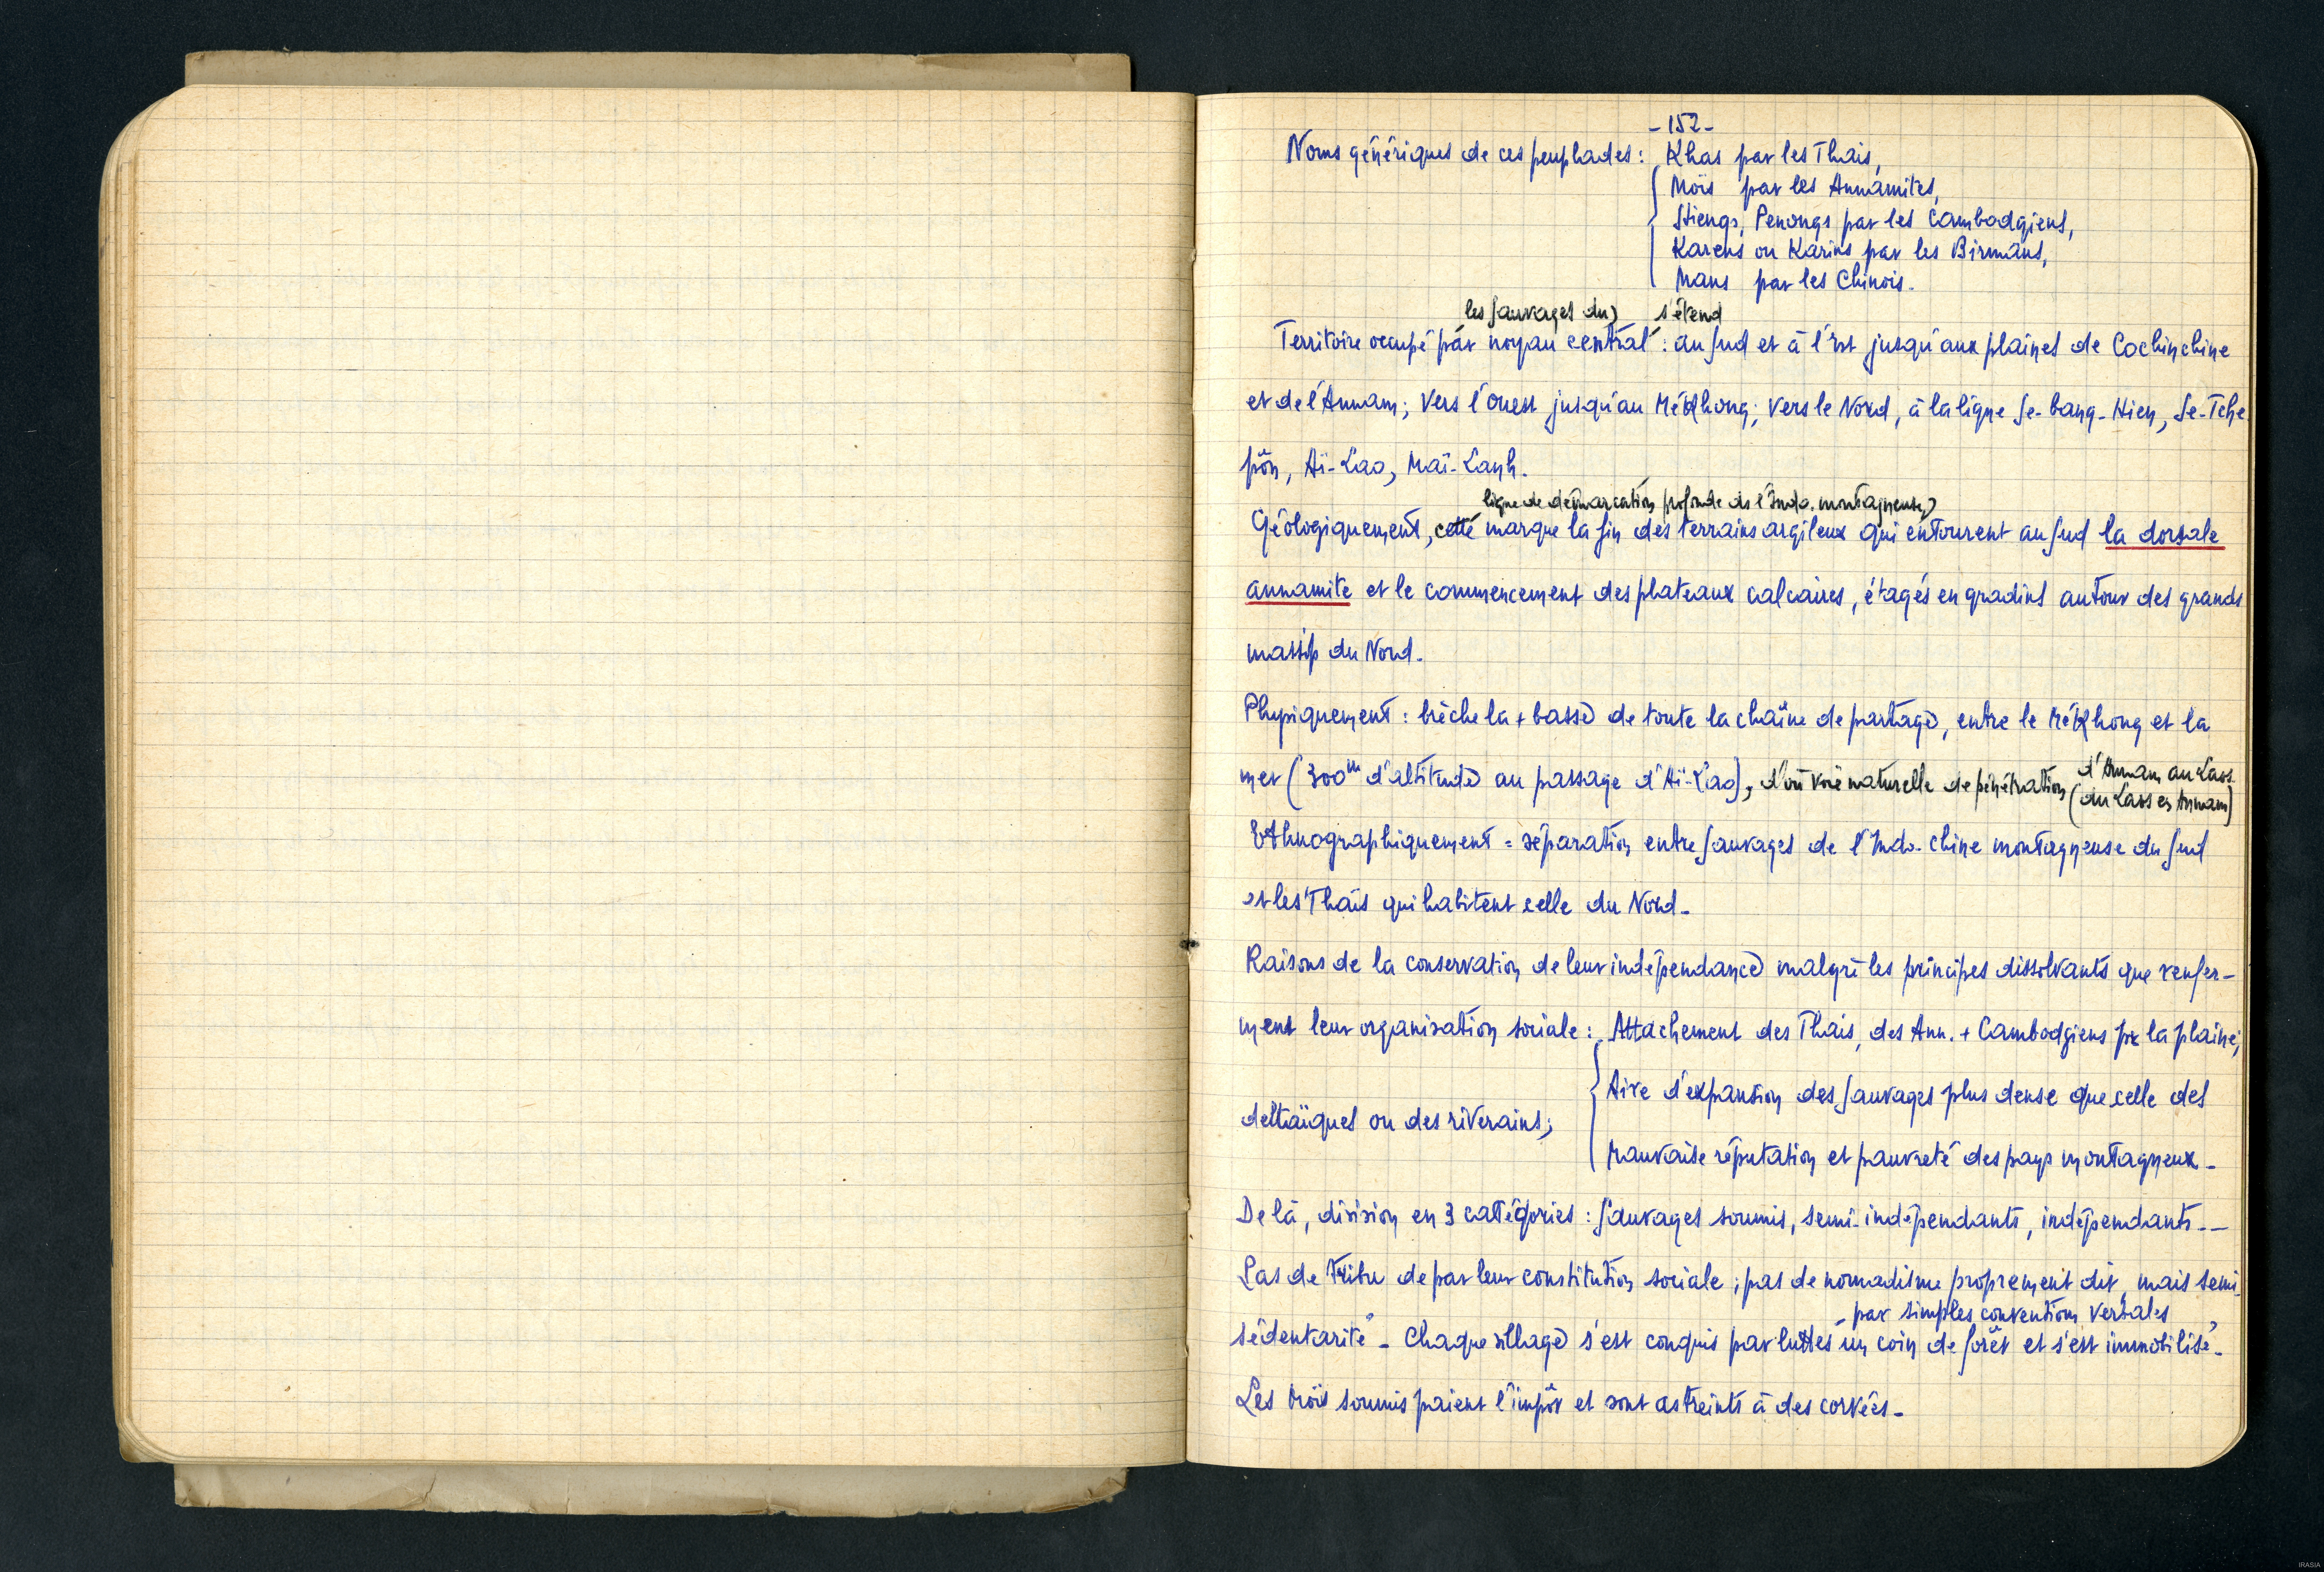 -152-
Noms génériques de ces peuplades : Khas par les Thais,
Moïs par les Annamites,
Stiengs, Penongs par les Cambodgiens,
Karens ou Karins par les Birmans,
Mans par les Chinois.
les sauvages du s'étend
Territoire occupé par noyau central : au sud et à l'Est jusqu'aux plaines de Cochinchine
et de l'Annam ; vers l'ouest jusqu'au Mékhong ; vers le Nord, à la ligne Se-bang-Hien, Se-Tche
pôn, Aï-Lao, Maï-Lanh.
ligne de démarcation profonde de l'Indo. montagneuse
Géologiquement, cette marque la fin des terrains argileux qui entourent au sud la dorsale
annamite et le commencement des plateaux calcaires, étagés en gradins autour des grands
massifs du Nord.
Physiquement : brèche la + basse de toute la chaîne de partage, entre le Mékhong et la
mer (300m d'altitude au passage d'Aï-Lao), d'où voie naturelle de pénétration d'Annam au Laos
(du Laos en Annam)
Ethnographiquement = séparation entre sauvages de l'Indo-chine montagneuse du sud
et les Thaïs qui habitent celle du Nord.
Raisons de la conservation de leur indépendance malgré les principes dissolvants que renfer-
ment leur organisation sociale : Attachement des Thais, des Ann. + Cambodgiens pr la plaine;
Aire d'expansion des sauvages plus dense que celle des
deltaïques ou des riverains;
Mauvaise réputation et pauvreté des pays montagneux.
De là, division en 3 catégories : sauvages soumis, semi-indépendants, indépendants.
Pas de tribu de par leur constitution sociale ; pas de nomadisme proprement dit, mais semi-
par simples conventions verbales
sédentarité - Chaque village s'est conquis par luttes un coin de forêt et s'est immobilisé.
Les Moïs soumis paient l'impôt et sont astreints à des corvées.
IRASIA